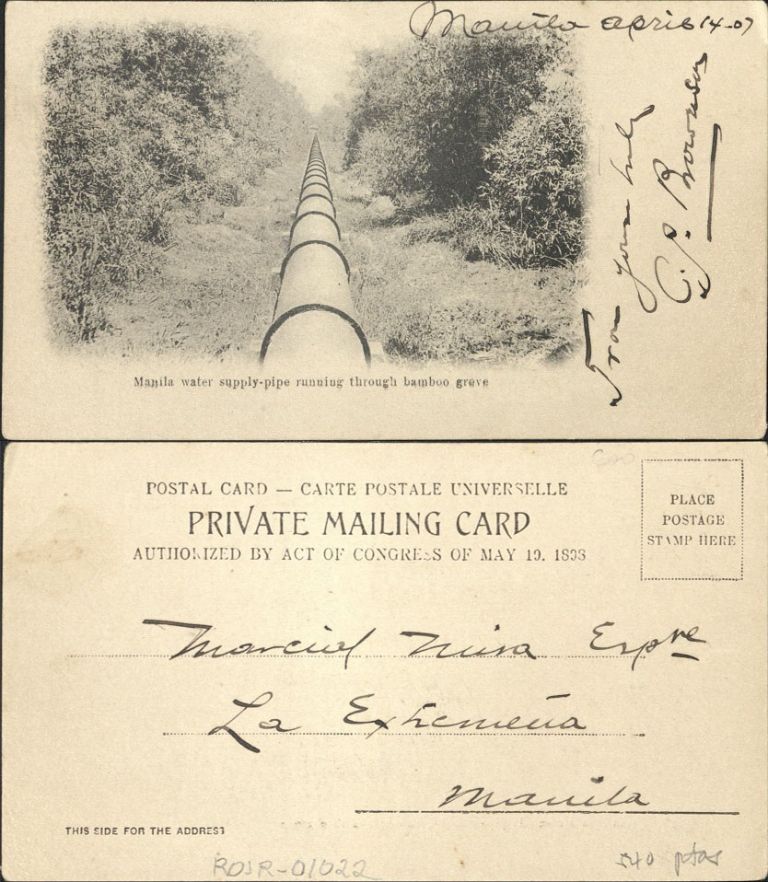 Manila April 14-07
From yours truly
C. S. Brownson
Manila water supply-pipe running through bamboo grove
POSTAL CARD — CARTE POSTALE UNIVERSELLE
PRIVATE MAILING CARD
AUTHORIZED BY ACT OF CONGRESS OF MAY 19, 1898
PLACE
POSTAGE
STAMP HERE
Marcial Mira Espre
La Extremeña
Manila
THIS SIDE FOR THE ADDRESS
ROJR-01022
540 ptas